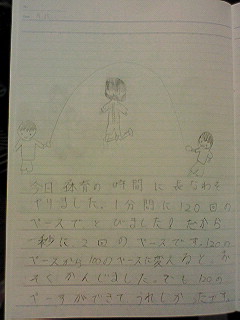 今日体育の時間に長なわを
やりました。1分間に120回の
ペースでとびました。だから
一秒に2回のペースです。120の
ペースから100のペースに変えると、お
そくかんじました。でも120の
ペースができてうれしかったです。